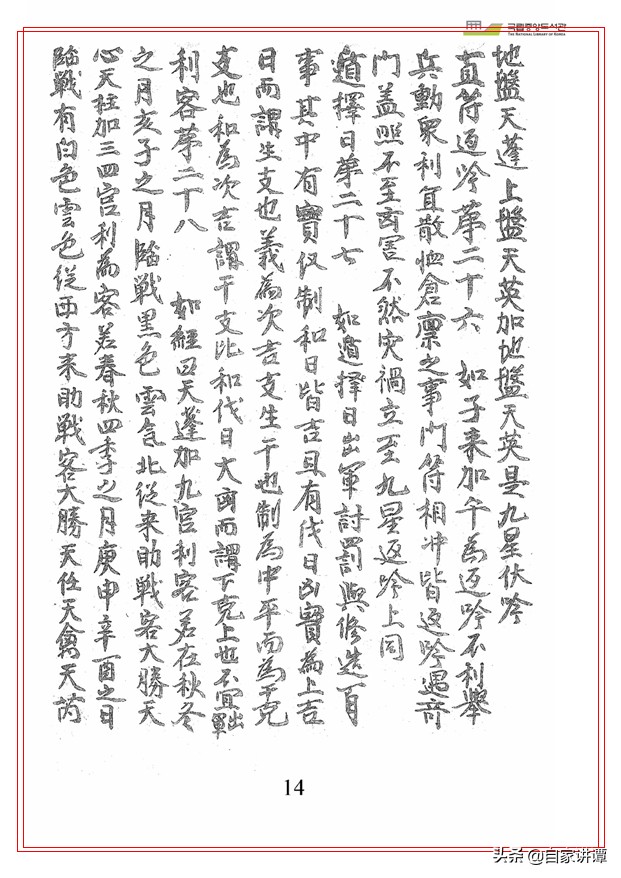 국립중앙도서관
THE NATIONAL LIBRARY OF KOREA
地盤天蓬上盤天英加地盤天英是九星伏吟
直符返吟苐二十六 如子来加午為返吟不利舉
兵動衆利宜散恤倉禀之事門符相冲皆返吟遇奇
門盖照不至㐫害不然灾禍立至九星返吟上同
遁擇日苐二十七 如遁擇日出軍討罰與修造百
事其中有寶仪制和日皆吉且有伐日凶寶為上吉
日而謂生支也義為次吉支生干也制為中平而為干克
支也和為次吉謂干支比和伐日大㐫而謂下克上也不宜出戰
利客苐二十八 如經曰天蓬加九宫利客若在秋冬
之月亥子之月臨戰黑色雲气北從来助戰客大勝天
心天柱加三四宫利為客若春秋四季之月庚申辛酉之日
臨戰有白色雲色從西方来助戰客大勝天任天禽天芮
14
头条 @自家讲谭